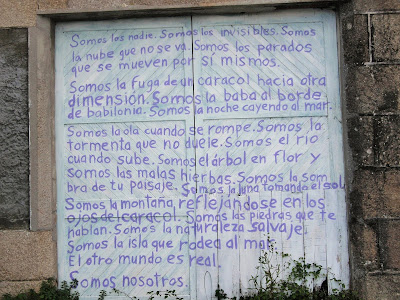 Somos los nadie. Somos los invisibles. Somos
la nube que no se va. Somos los parados
que se mueven por sí mismos.
Somos la fuga de un caracol hacia otra
dimensión. Somos la baba al borde
de babilonia. Somos la noche cayendo al mar.
Somos la ola cuando se rompe. Somos la
tormenta que no duele. Somos el río
cuando sube. Somos el árbol en flor y
somos las malas hierbas. Somos la som
bra de tu paisaje. Somos la luna tomando el sol.
Somos la montaña, reflejándose en los
ojos del caracol. Somos las piedras que te
hablan. Somos la naturaleza salvaje.
Somos la isla que rodea al mar.
El otro mundo es real.
Somos nosotros.